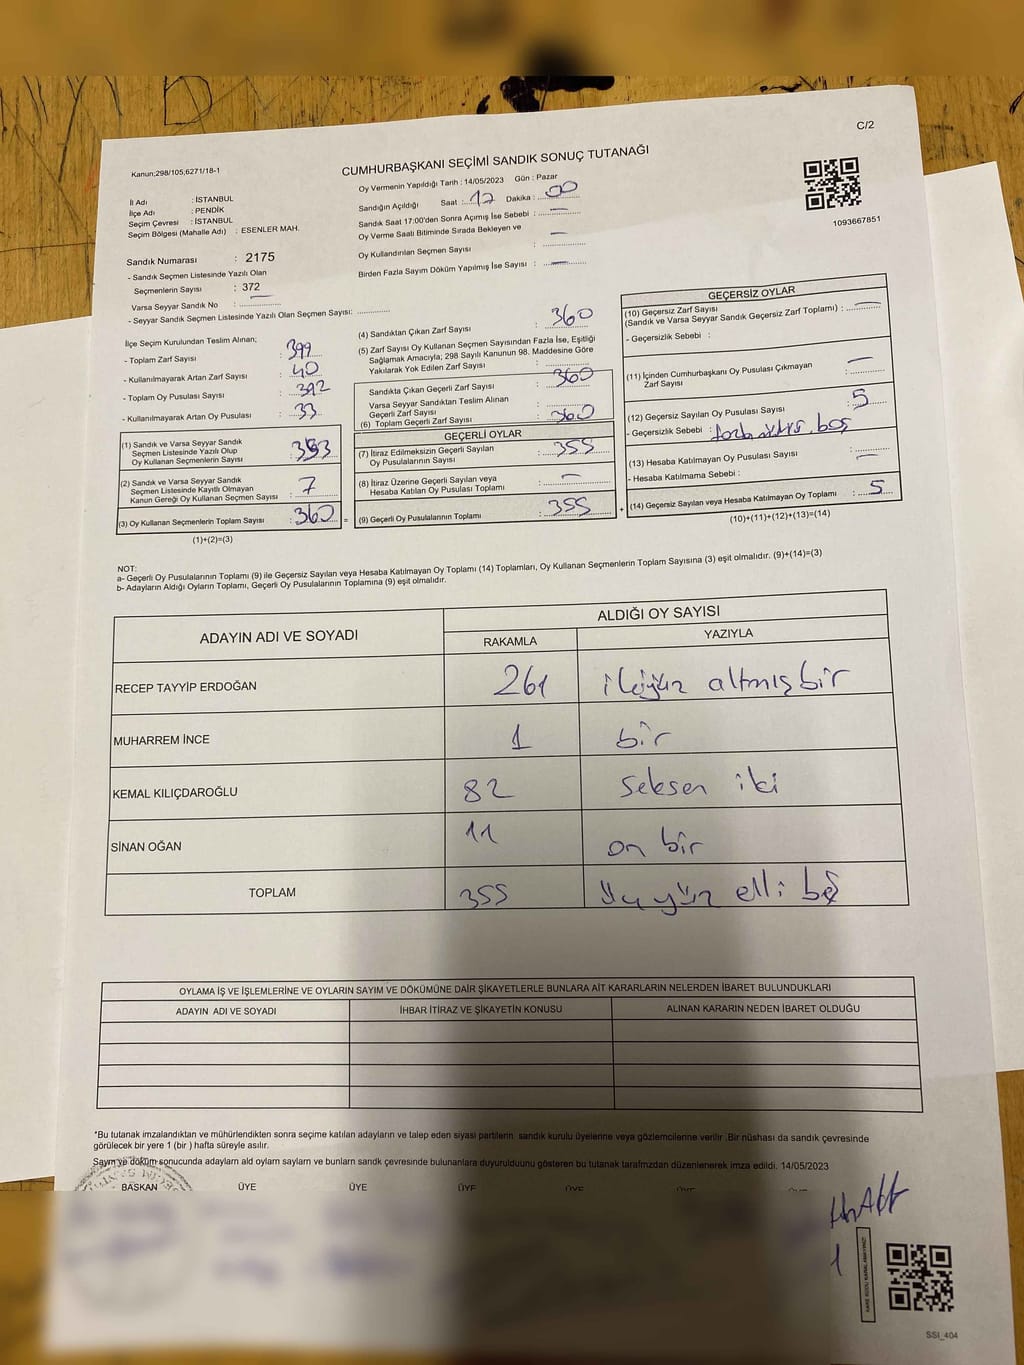 C/2
Kanun;298/105,6271/18-1
CUMHURBAŞKANI SEÇİMİ SANDIK SONUÇ TUTANAĞI
Oy Vermenin Yapıldığı Tarih : 14/05/2023 Gün : Pazar
İl Adı : İSTANBUL
İlçe Adı : PENDİK
Seçim Çevresi : İSTANBUL
Seçim Bölgesi (Mahalle Adı) : ESENLER MAH.
Sandık Numarası : 2175
- Sandık Seçmen Listesinde Yazılı Olan
Seçmenlerin Sayısı : 372
Varsa Seyyar Sandık No :
- Seyyar Sandık Seçmen Listesinde Yazılı Olan Seçmen Sayısı:
Sandığın Açıldığı Saat : 17 Dakika : 00
Sandık Saat 17:00'den Sonra Açımış İse Sebebi : —
Oy Verme Saati Bitiminde Sırada Bekleyen ve
Oy Kullandırılan Seçmen Sayısı : —
Birden Fazla Sayım Döküm Yapılmış İse Sayısı : —
1093667851
İlçe Seçim Kurulundan Teslim Alınan;
- Toplam Zarf Sayısı : 399
- Kullanılmayarak Artan Zarf Sayısı : 40
- Toplam Oy Pusulası Sayısı : 392
- Kullanılmayarak Artan Oy Pusulası : 33
(1) Sandık ve Varsa Seyyar Sandık
Seçmen Listesinde Yazılı Olup
Oy Kullanan Seçmenlerin Sayısı : 353
(2) Sandık ve Varsa Seyyar Sandık
Seçmen Listesinde Kayıtlı Olmayan
Kanun Gereği Oy Kullanan Seçmen Sayısı : 7
(3) Oy Kullanan Seçmenlerin Toplam Sayısı : 360 =
(1)+(2)=(3)
(4) Sandıktan Çıkan Zarf Sayısı : 360
(5) Zarf Sayısı Oy Kullanan Seçmen Sayısından Fazla İse, Eşitliği
Sağlamak Amacıyla; 298 Sayılı Kanunun 98. Maddesine Göre
Yakılarak Yok Edilen Zarf Sayısı :
Sandıkta Çıkan Geçerli Zarf Sayısı : 360
Varsa Seyyar Sandıktan Teslim Alınan
Geçerli Zarf Sayısı :
(6) Toplam Geçerli Zarf Sayısı : 360
GEÇERLİ OYLAR
(7) İtiraz Edilmeksizin Geçerli Sayılan
Oy Pusulalarının Sayısı : 355
(8) İtiraz Üzerine Geçerli Sayılan veya
Hesaba Katılan Oy Pusulası Toplamı : —
(9) Geçerli Oy Pusulalarının Toplamı : 355 +
GEÇERSİZ OYLAR
(10) Geçersiz Zarf Sayısı
(Sandık ve Varsa Seyyar Sandık Geçersiz Zarf Toplamı) : —
- Geçersizlik Sebebi :
(11) İçinden Cumhurbaşkanı Oy Pusulası Çıkmayan
Zarf Sayısı —
(12) Geçersiz Sayılan Oy Pusulası Sayısı : 5
- Geçersizlik Sebebi : boş
(13) Hesaba Katılmayan Oy Pusulası Sayısı : —
- Hesaba Katılmama Sebebi :
(14) Geçersiz Sayılan veya Hesaba Katılmayan Oy Toplamı : 5
(10)+(11)+(12)+(13)=(14)
NOT:
a- Geçerli Oy Pusulalarının Toplamı (9) ile Geçersiz Sayılan veya Hesaba Katılmayan Oy Toplamı (14) Toplamları, Oy Kullanan Seçmenlerin Toplam Sayısına (3) eşit olmalıdır. (9)+(14)=(3)
b- Adayların Aldığı Oyların Toplamı, Geçerli Oy Pusulalarının Toplamına (9) eşit olmalıdır.
ADAYIN ADI VE SOYADI ALDIĞI OY SAYISI
RAKAMLA YAZIYLA
RECEP TAYYİP ERDOĞAN 261 ikiyüz altmış bir
MUHARREM İNCE 1 bir
KEMAL KILIÇDAROĞLU 82 seksen iki
SİNAN OĞAN 11 on bir
TOPLAM 355 üç yüz elli beş
OYLAMA İŞ VE İŞLEMLERİNE VE OYLARIN SAYIM VE DÖKÜMÜNE DAİR ŞİKAYETLERLE BUNLARA AİT KARARLARIN NELERDEN İBARET BULUNDUKLARI
ADAYIN ADI VE SOYADI İHBAR İTİRAZ VE ŞİKAYETİN KONUSU ALINAN KARARIN NEDEN İBARET OLDUĞU
*Bu tutanak imzalandıktan ve mühürlendikten sonra seçime katılan adayların ve talep eden siyasi partilerin sandık kurulu üyelerine veya gözlemcilerine verilir .Bir nüshası da sandık çevresinde
görülecek bir yere 1 (bir ) hafta süreyle asılır.
Sayım ve döküm sonucunda adayların ald oyların sayları ve bunların sandk çevresinde bulunanlara duyurulduunu gösteren bu tutanak tarafmzdan düzenlenerek imza edildi. 14/05/2023
BAŞKAN ÜYE ÜYE ÜYE ÜYE ÜYE ÜYE
1
KARE KODU KARALAMAYINIZ!
SSI_404